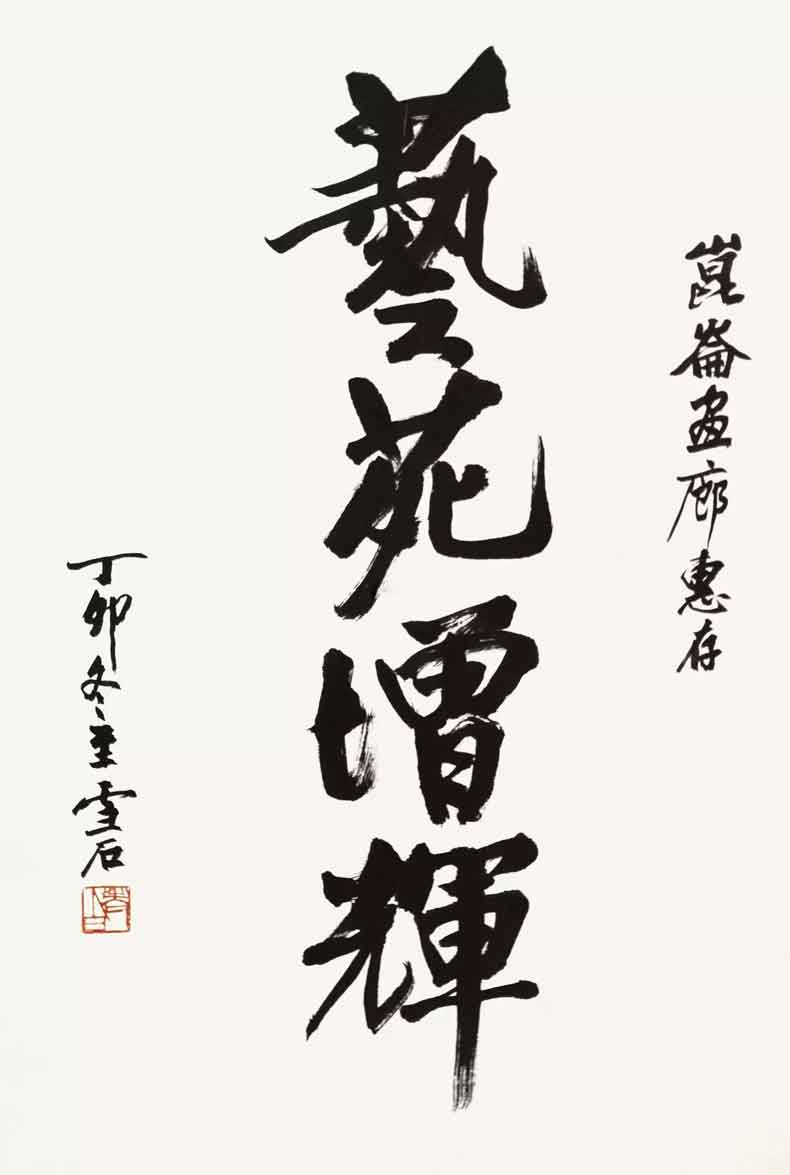 崑崙画廊惠存
藝苑增輝
丁卯冬至雪石